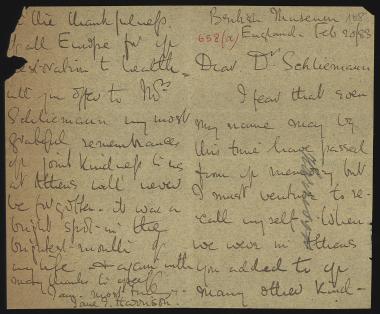 British Museum 188
658(a) England. Feb 20/83
Dear Dr Schliemann
I fear that even
my name may by
this time have passed
from yr memory but
I must venture to re-
call myself. When
we were in Athens
you added to yr
many other kind-
in the thankfulness
of all Europe for yr
restoration to health.
Will you offer to Mrs
Schliemann my most
grateful remembrances
yr joint kindness to us
at Athens will never
be forgotten. it was a
bright spot in the
brightest month of
my life & again with
many thanks to yrself
I am most truly
Jane E. Harrison.